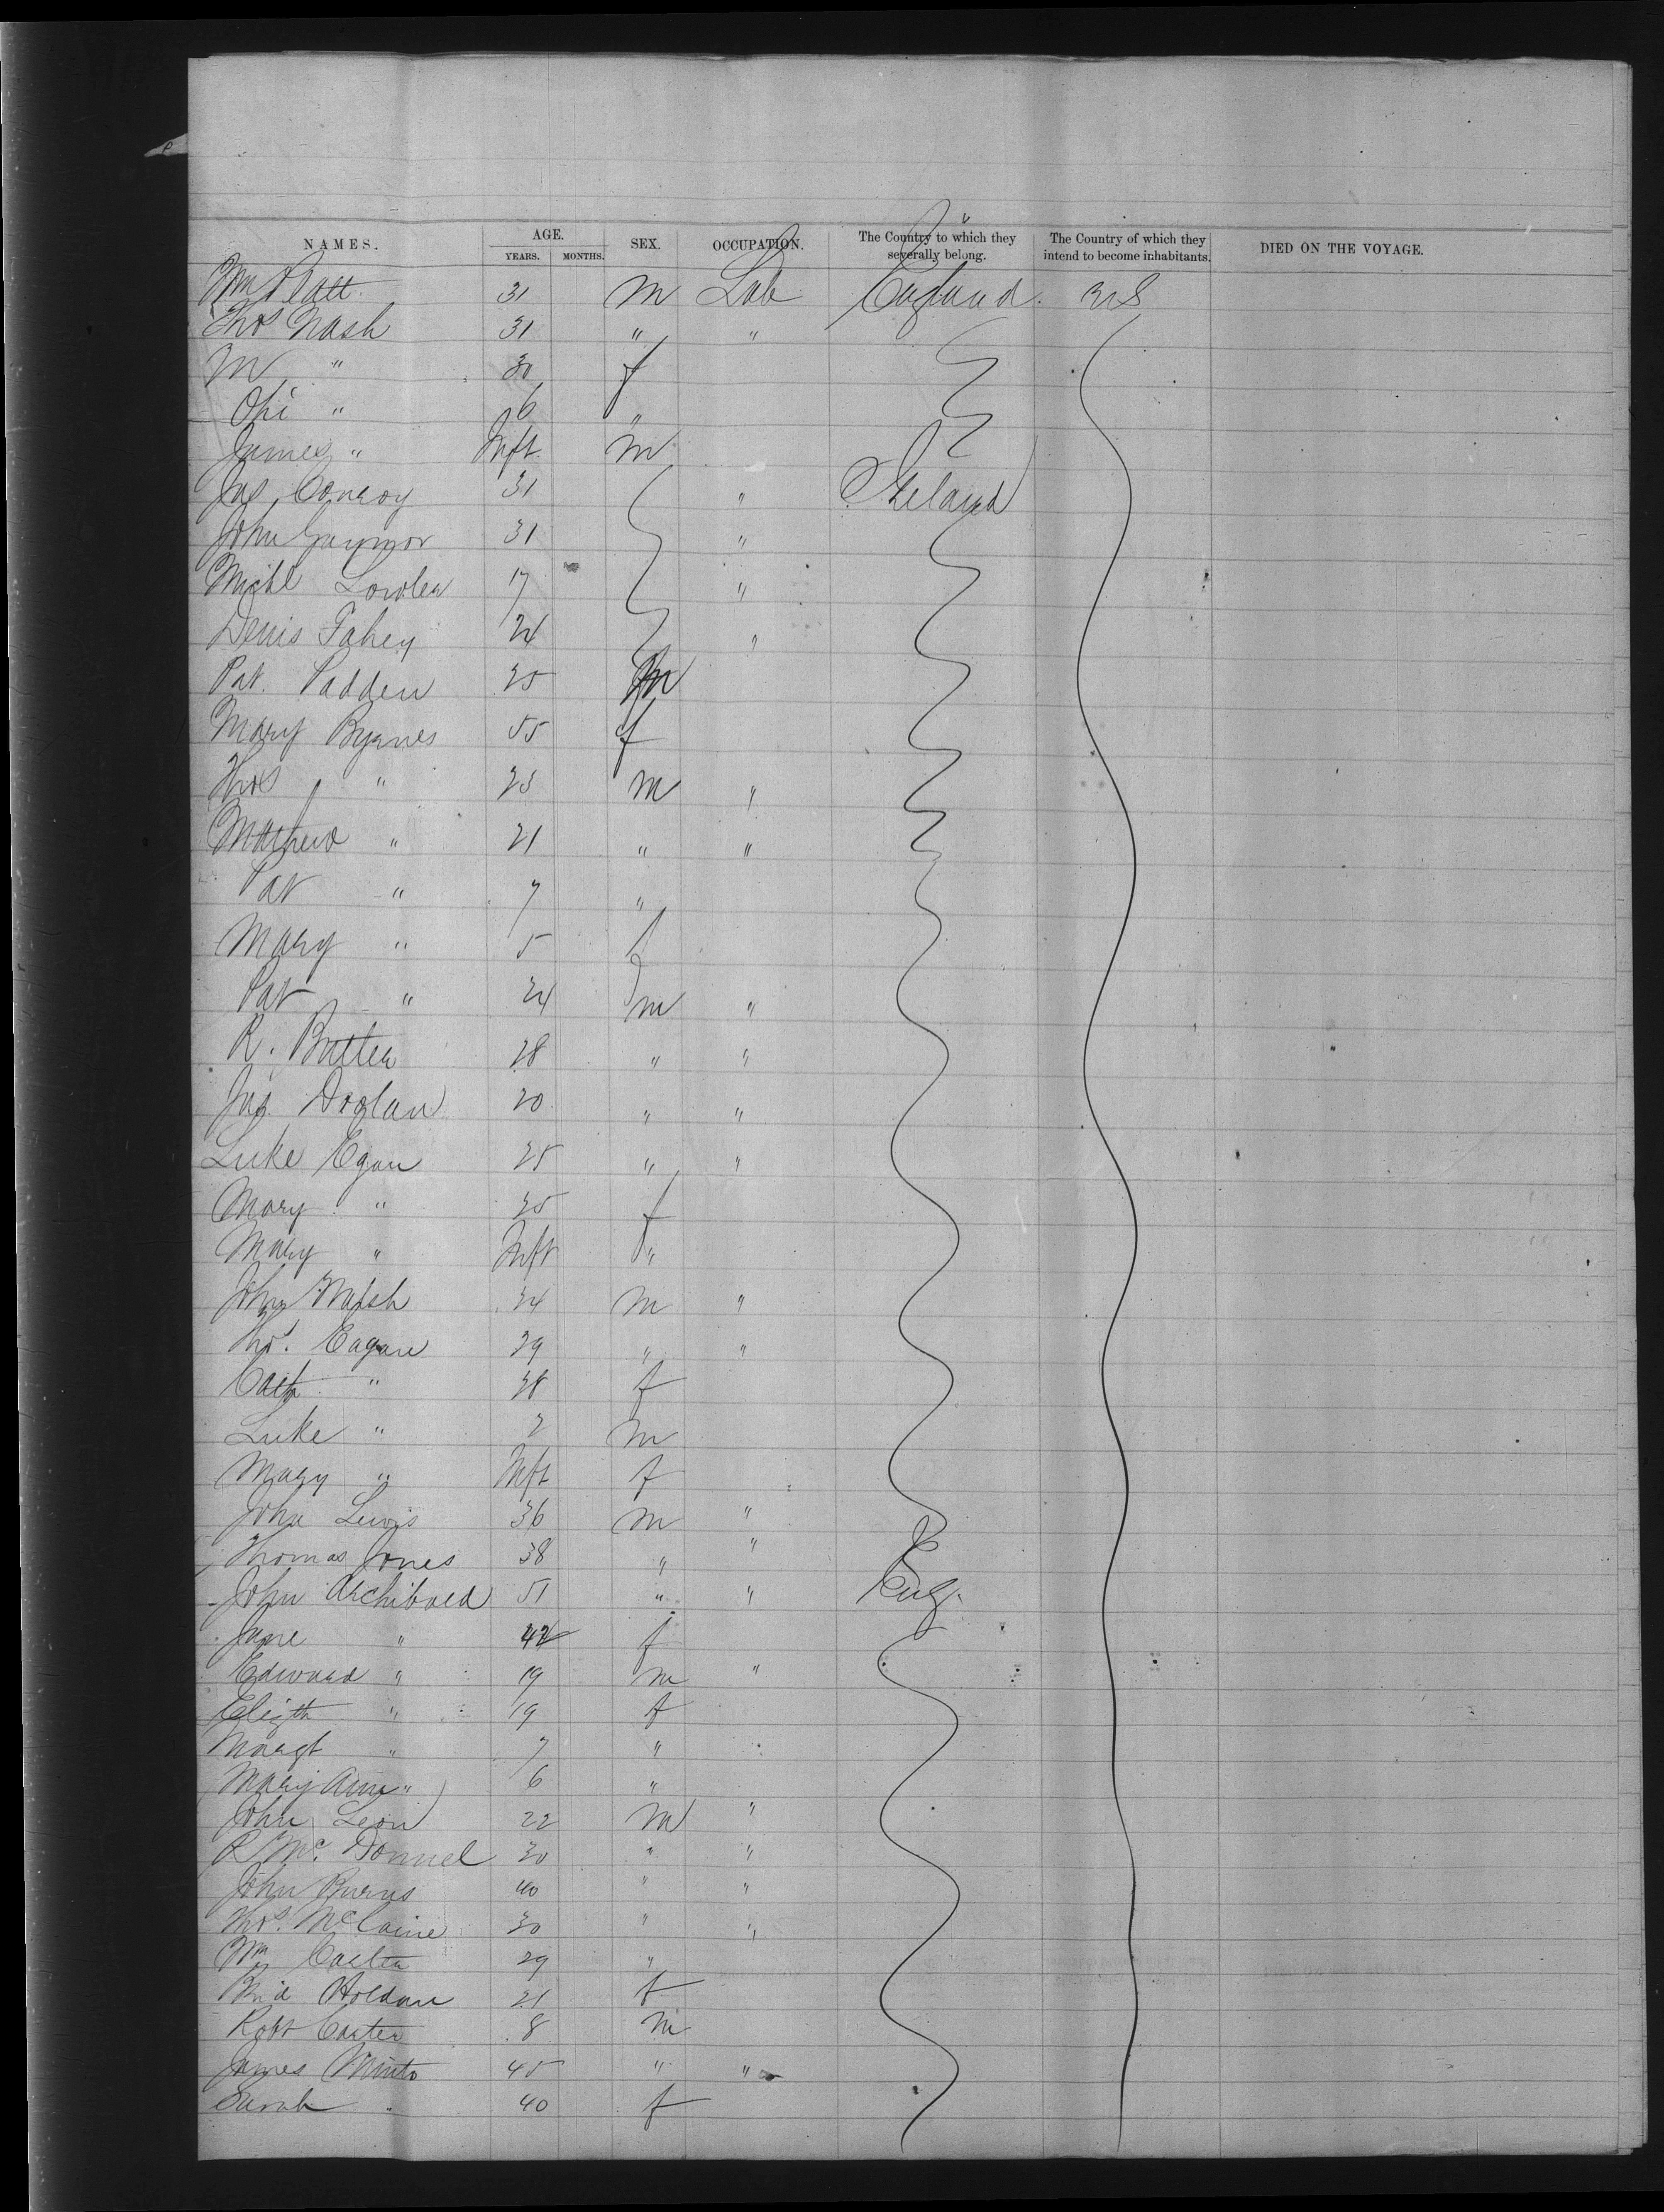 NAMES. AGE. SEX. OCCUPATION. The Country to which they severally belong. The Country of which they intend to become inhabitants. DIED ON THE VOYAGE.
YEARS. MONTHS.
Wm Platt 31 m Lab England US
Thos Nash 31 " "
M " 30 f
" 6 "
James " Inft. m
Jas Conroy 31 " Ireland
John Gaynor 31 "
Michl Lowler 17 "
Denis Fahey 24 "
Pat. Padden 25 m
Mary Byrnes 55 f
Thos " 23 m "
Mathew " 21 " "
Pat " 7 "
Mary " 5 f
Pat " 24 m "
R. Butler 28 " "
Jas. 20 " "
Luke Egan 25 " "
Mary " 25 f
Mary " Inft "
John Walsh 24 m "
Thos. Eagan 29 " "
Cath " 28 f
Luke " 2 m
Mary " Inft f
John Lewis 36 m "
Thomas Jones 38 " "
John Archibald 51 " " Eng.
Jane " 42 f
Edward " 19 m "
Elizth " 19 f
Margt " 7 "
Mary Ann " 6 "
John Leon 22 m "
R Mc. Donnel 30 " "
John Burns 40 " "
Thos. McCaine 30 " "
Wm Carter 29 "
Holdan 21 f
Robt Carter 8 m
James Minto 45 " "
Sarah " 40 f